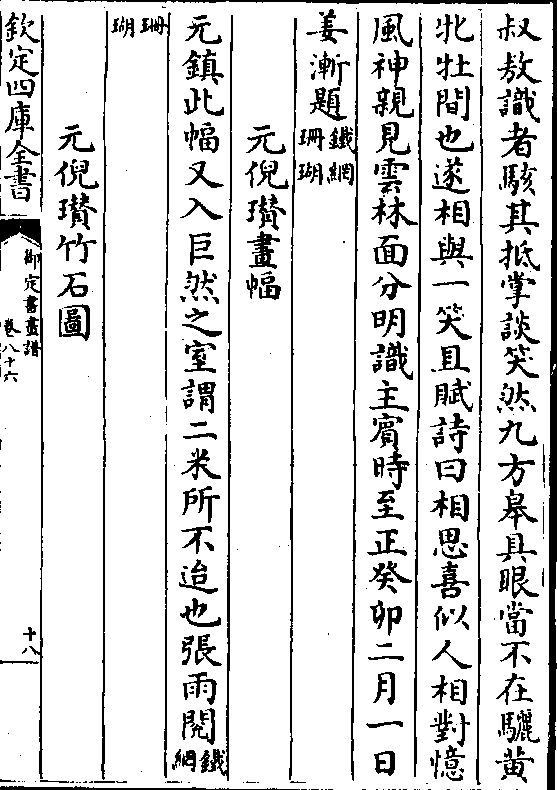 叔敖識者駭其抵掌談笑然九方皋具眼當不在驪黃
牝牡間也遂相與一笑且賦詩曰相思喜似人相對憶
風神親見雲林面分明識主賓時至正癸卯二月一日
姜漸題鐵網珊瑚
元倪瓚畫幅
元鎮此幅又入巨然之室謂二米所不迨也張雨閱鐵網
珊瑚
元倪瓚竹石圖
欽定四庫全書
御定書畫譜
卷八十六
十八